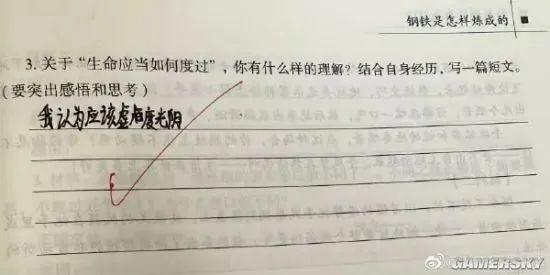 钢铁是怎样炼成的
3. 关于“生命应当如何度过”，你有什么样的理解？结合自身经历，写一篇短文。
（要突出感悟和思考）
我认为应该虚度光阴
GAMERSKY